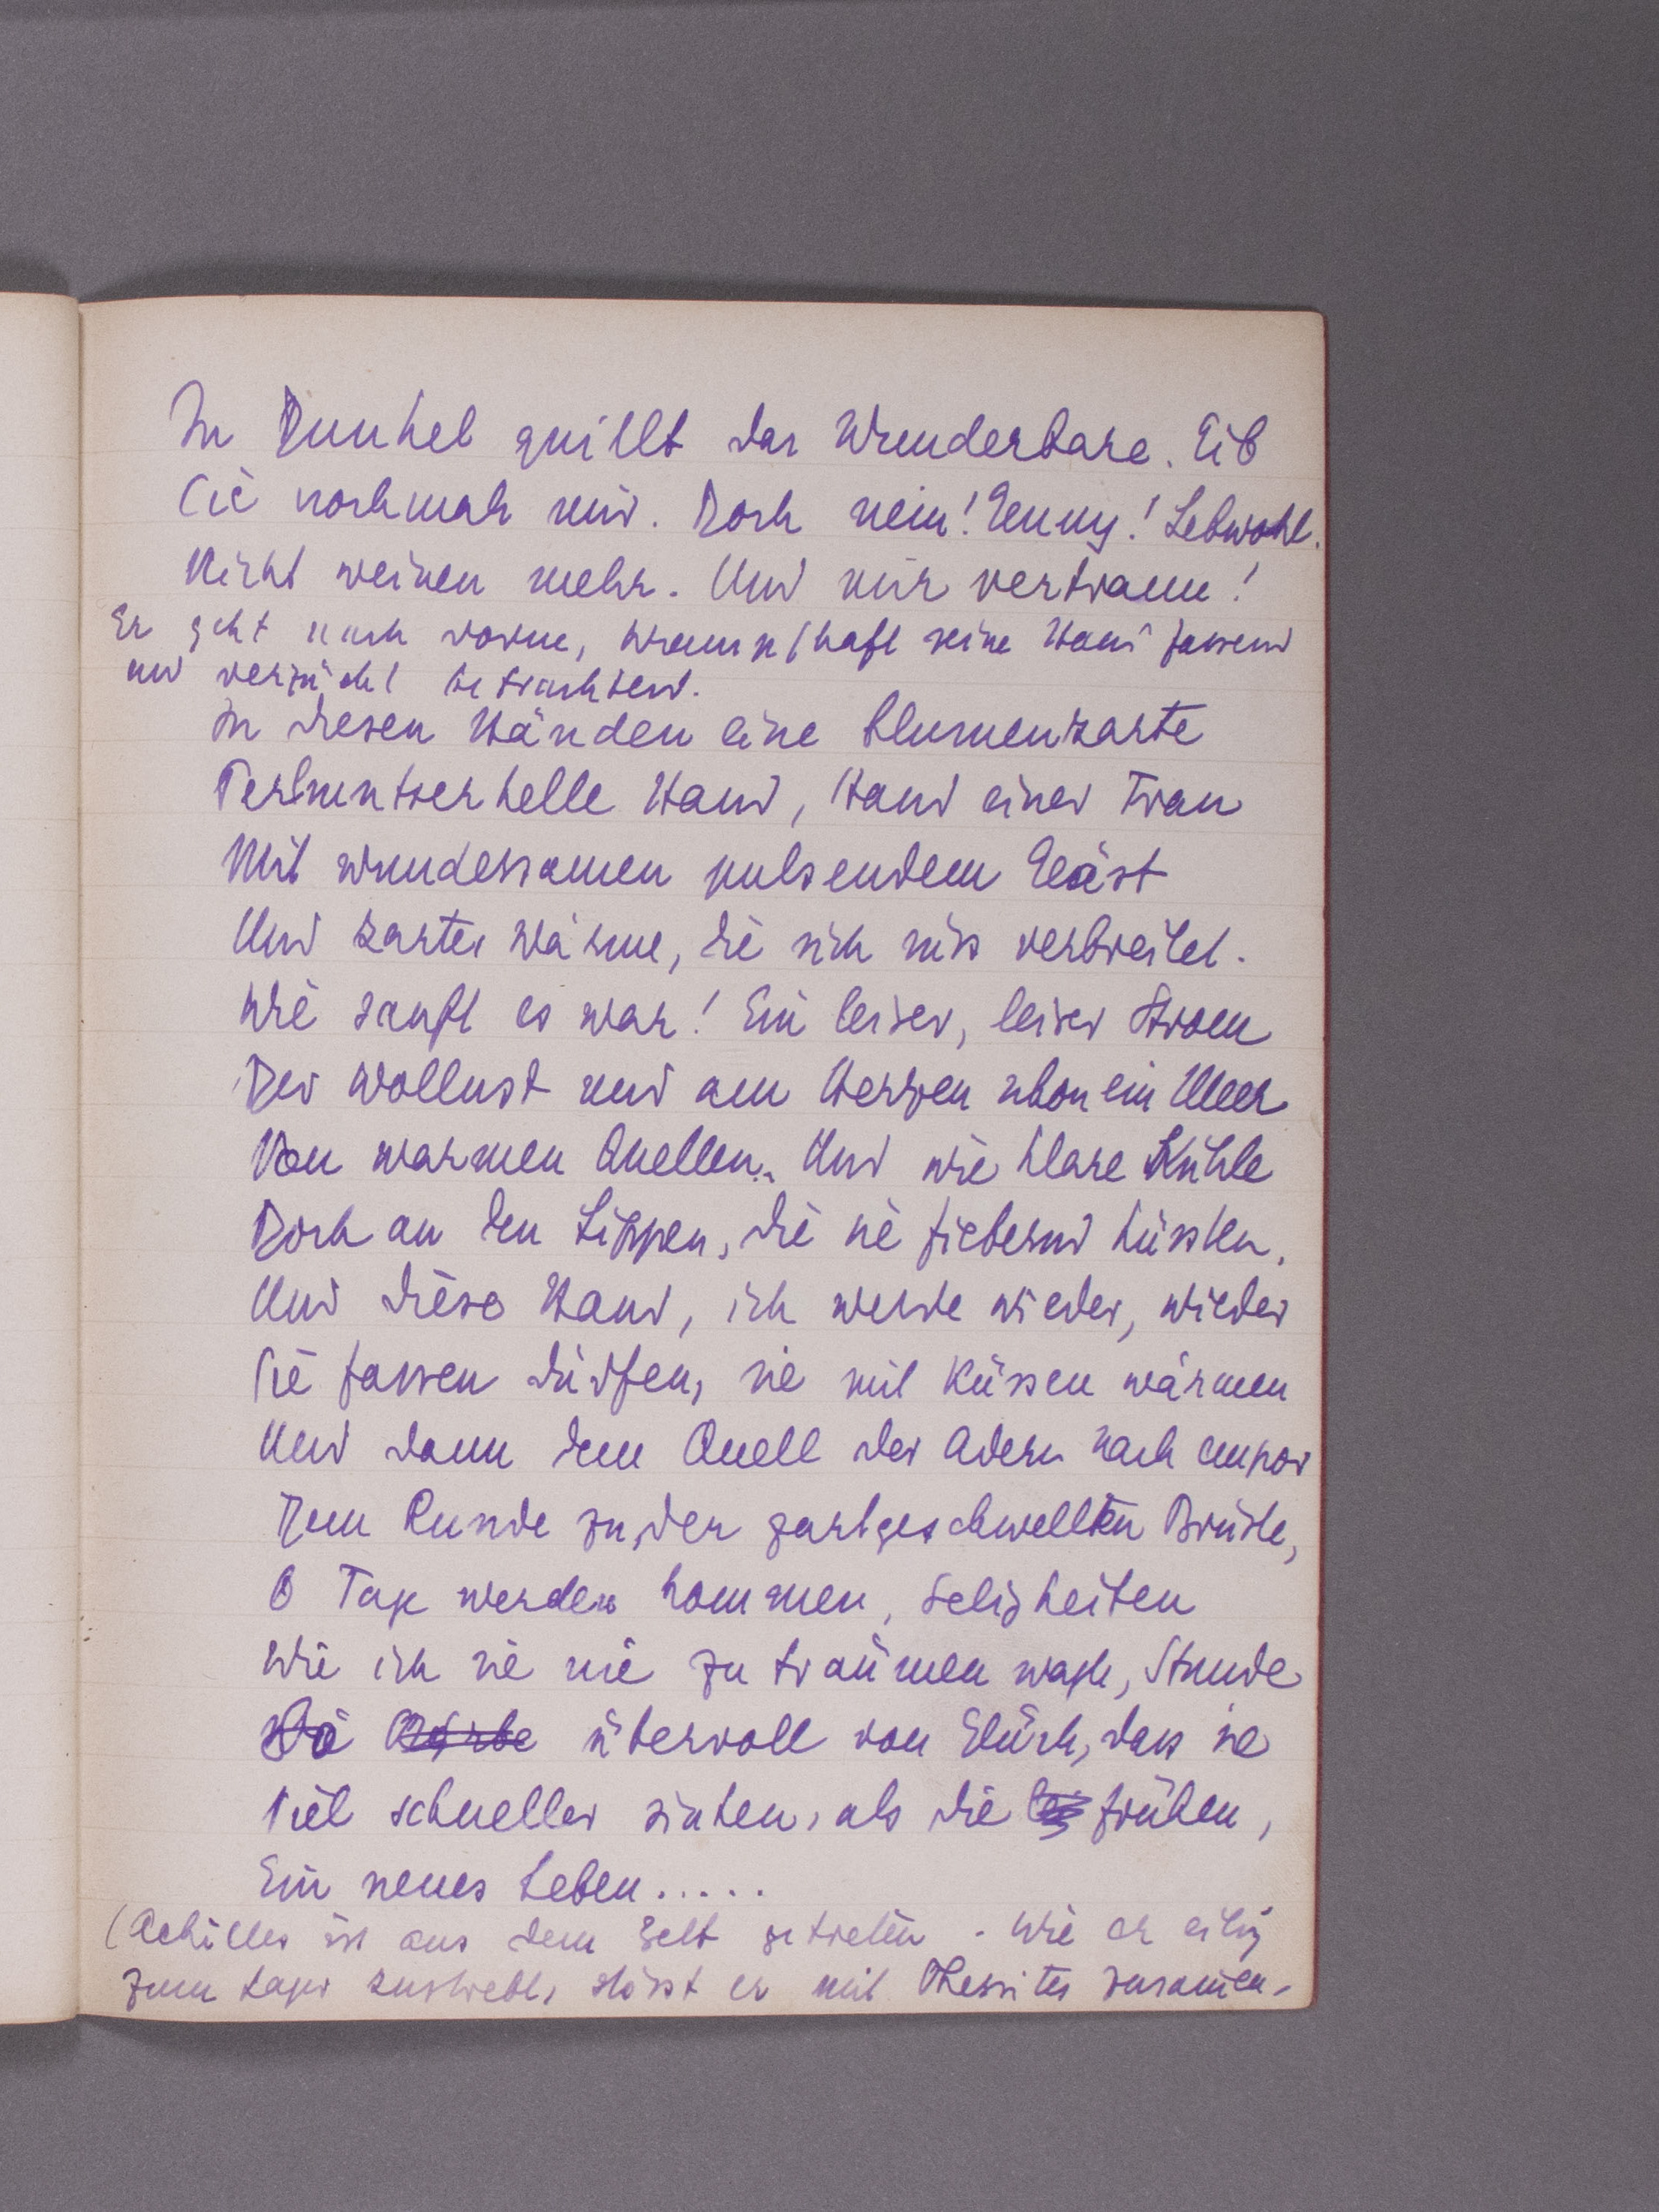 Im Dunkel quillt das Wunderbare. Gib
Sie nochmals mir. Doch nein! Genug! Lebwohl.
Nicht weinen mehr. Und mir vertraun!
Er geht nach vorne, traumhaft seine Hand fassend
und verzückt betrachtend.
In diesen Händen eine blumenzarte
Perlmutterhelle Hand, Hand einer Frau
Mit wundersamen pulsendem Geäst
Und zarter Wärme, die sich süss verbreitet.
Wie sanft es war! Ein leiser, leiser Strom
Der Wollust und am Herzen schon ein Meer
Von warmen Quellen. Und wie klare Kühle
Doch an den Lippen, die sie fiebernd küssten.
Und diese Hand, ich werde wieder, wieder
Sie fassen dürfen, sie mit Küssen wärmen
Und dann dem Quell der Adern nach empor
Dem Runde zu, der zartgeschwellten Brüste,
O Tage werden kommen, Seligkeiten
Wie ich sie nie zu träumen wagte, Stunde
So übervoll von Glück, dass sie
Viel schneller sinken, als die frühen,
Ein neues Leben.....
(Achilles ist aus dem Zelt getreten. Wie er eilig
zum Lager zustrebt, stösst er mit Thersites zusammen.